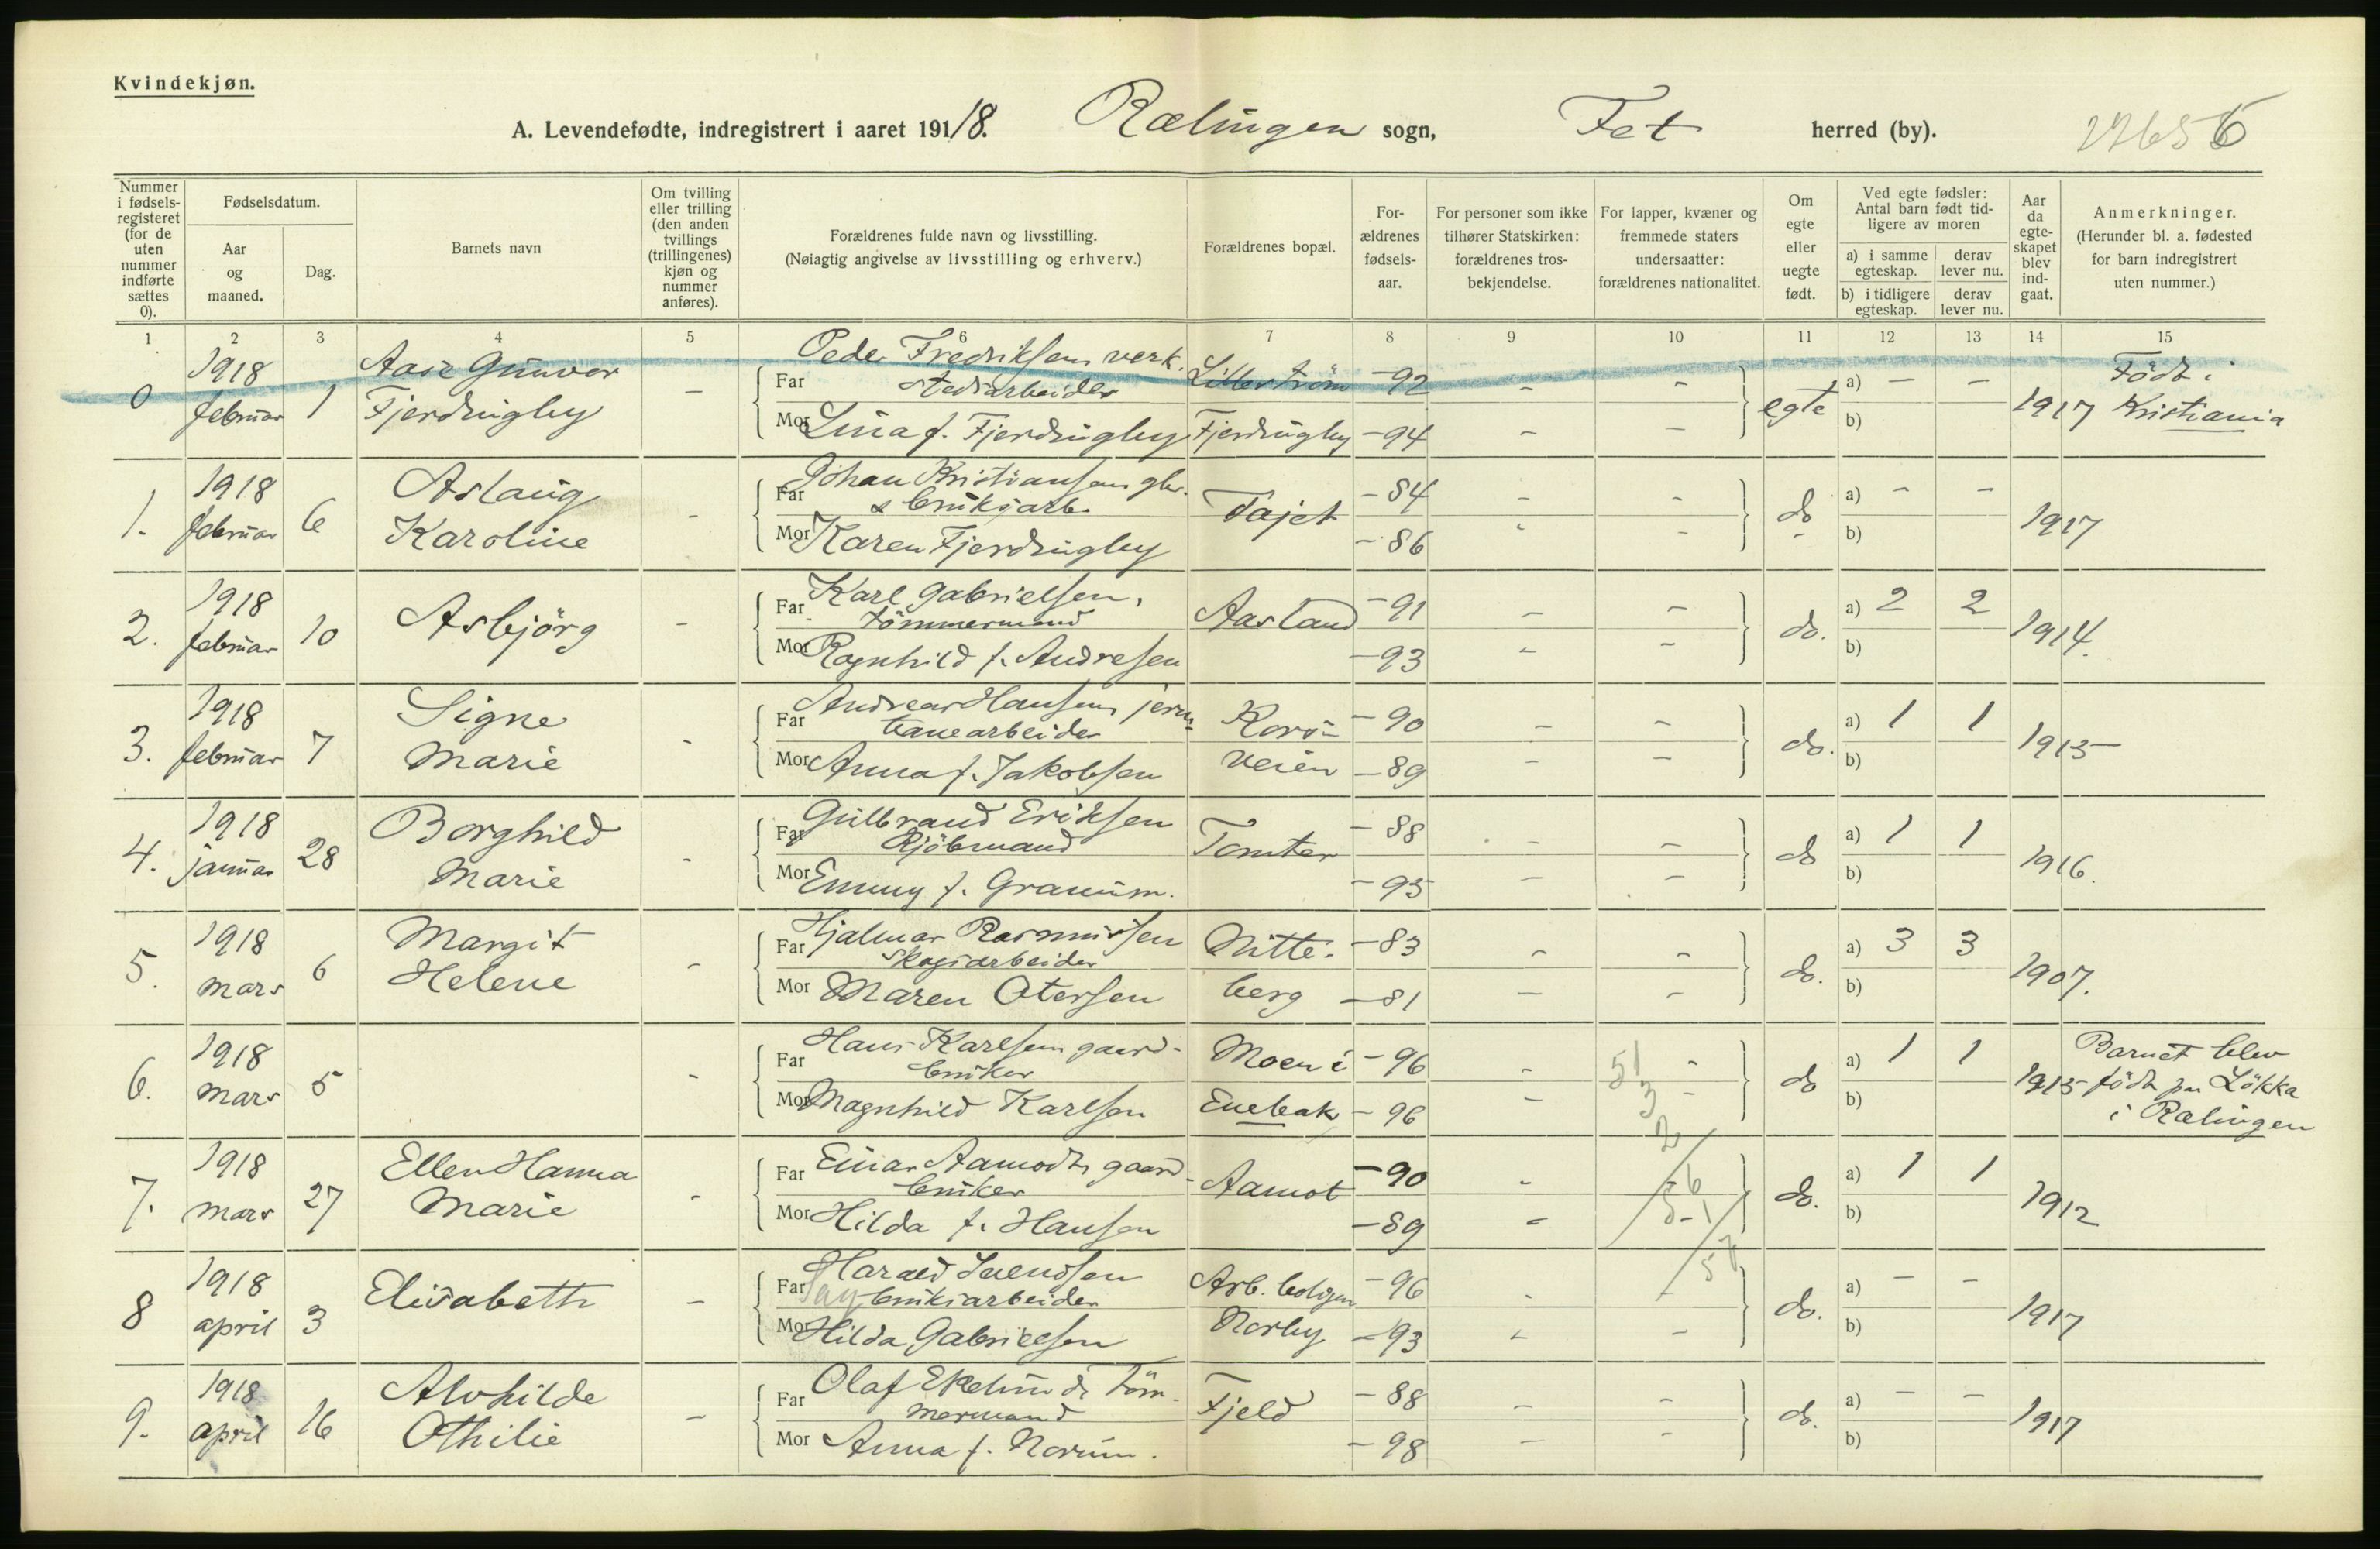 Kvindekjøn.
A. Levendefødte, indregistrert i aaret 1918. Rælingen sogn, Fet herred (by).
Nummer i fødselsregisteret (for de uten nummer indførte sættes 0).
Fødselsdatum.
Aar og maaned.
Dag.
Barnets navn
Om tvilling eller trilling (den anden tvillings (trillingenes) kjøn og nummer anføres).
Forældrenes fulde navn og livsstilling.
(Nøiagtig angivelse av livsstilling og erhverv.)
Forældrenes bopæl.
For-ældrenes fødsels-aar.
For personer som ikke tilhører Statskirken: forældrenes tros-bekjendelse.
For lapper, kvæner og fremmede staters undersaatter: forældrenes nationalitet.
Om egte eller uegte født.
Ved egte fødsler: Antal barn født tid-ligere av moren
a) i samme egteskap. derav lever nu.
b) i tidligere egteskap. derav lever nu.
Aar da egte-skapet blev ind-gaat.
Anmerkninger.
(Herunder bl. a. fødested for barn indregistrert uten nummer.)
1 2 3 4 5 6 7 8 9 10 11 12 13 14 15
0 1918 februar 1 Aase Gunvor Fjerdingby -
Far Peder Fredriksen, verk-stedsarbeider Lilleström -92 - -
Mor Lina f. Fjerdingby Fjerdingby -94 - -
egte a) - - b) 1917 Födt i Kristiania
1. 1918 februar 6 Aslaug Karoline -
Far Johan Kristiansen gbr. & bruksarb. Tajet -84 - -
Mor Karen Fjerdingby -86 - -
do a) - - b) 1917
2. 1918 februar 10 Asbjörg -
Far Karl Gabrielsen, tömmermand Aasland -91 - -
Mor Ragnhild f. Andresen -93 - -
do. a) 2 2 b) 1914.
3. 1918 februar 7 Signe Marie -
Far Andreas Hansen, jern-banearbeider Korsveien -90 - -
Mor Anna f. Jakobsen -89 - -
do. a) 1 1 b) 1915
4. 1918 januar 28 Borghild Marie -
Far Gulbrand Eriksen Kjöbmand Tomter -88 - -
Mor Emmy f. Granum. -95 - -
do a) 1 1 b) 1916.
5. 1918 mars 6 Margit Helene -
Far Hjalmar Rasmussen Skogsarbeider Nitteberg -83 - -
Mor Maren Otersen -81 - -
do. a) 3 3 b) 1907.
6. 1918 mars 5 -
Far Hans Karlsen gaard-bruker Moen i -96 - -
Mor Magnhild Karlsen Enebak -96 - -
do a) 1 1 b) 1915 Barnet blev födt paa Lökka i Rælingen
7. 1918 mars 27 Ellen Hanna Marie -
Far Einar Aamodt, gaard-bruker Aamot -90 -
Mor Hilda f. Hansen -89 -
do. a) 1 1 b) 1912
8 1918 april 3 Elisabeth -
Far Harald Svendsen Sagbruksarbeider Arb. bolgen -96 - -
Mor Hilda Gabrielsen Norby -93 - -
do. a) - - b) 1917
9. 1918 april 16 Alvhilde Othilie -
Far Olaf Ekelund, töm-mermand Fjeld -88 - -
Mor Anna f. Norum. -98 - -
do. a) - - b) 1917